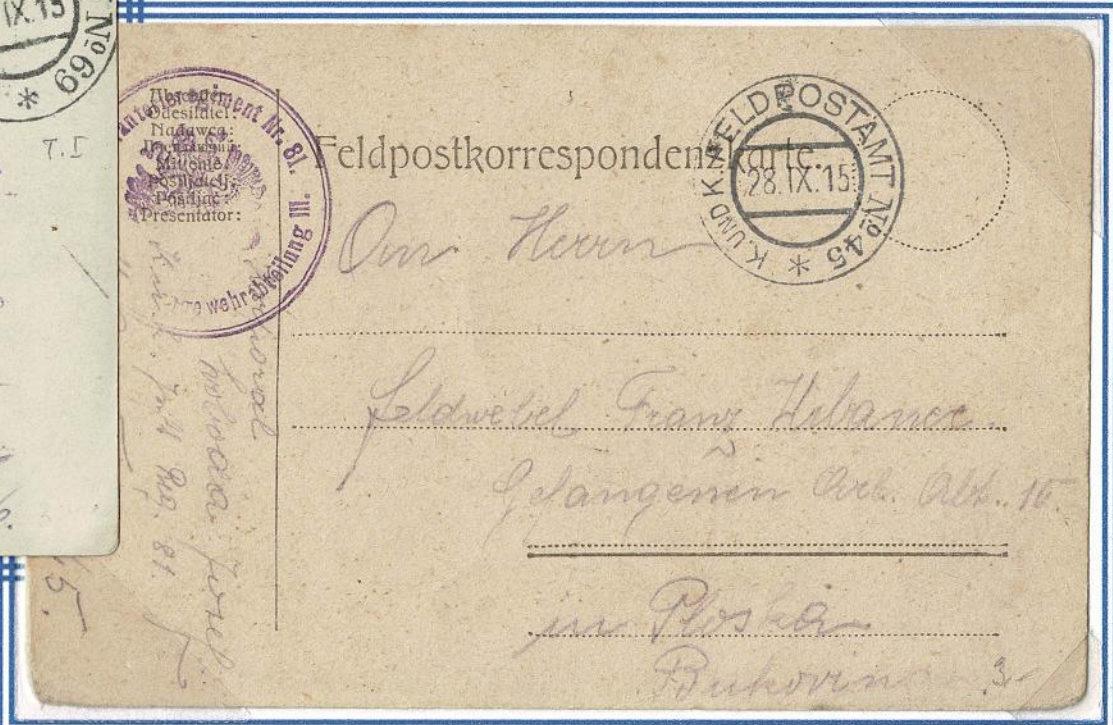 IX.15
Nº 69 *
T.I
Infanterieregiment Nr. 81.
wehrabteilung III.
Absender:
Odesílatel:
Nadawca:
Mittente:
Pošiljatelj:
Pošiljač:
Presentator:
Feldpostkorrespondenzkarte.
K. UND K. FELDPOSTAMT Nº 45 *
28.IX.15
An Herrn
Feldwebel Franz Urbanec
Gefangenen Arb. Abt.
in Ploska
Bukovin
3
Josef
Inft. Reg. 81.
15.